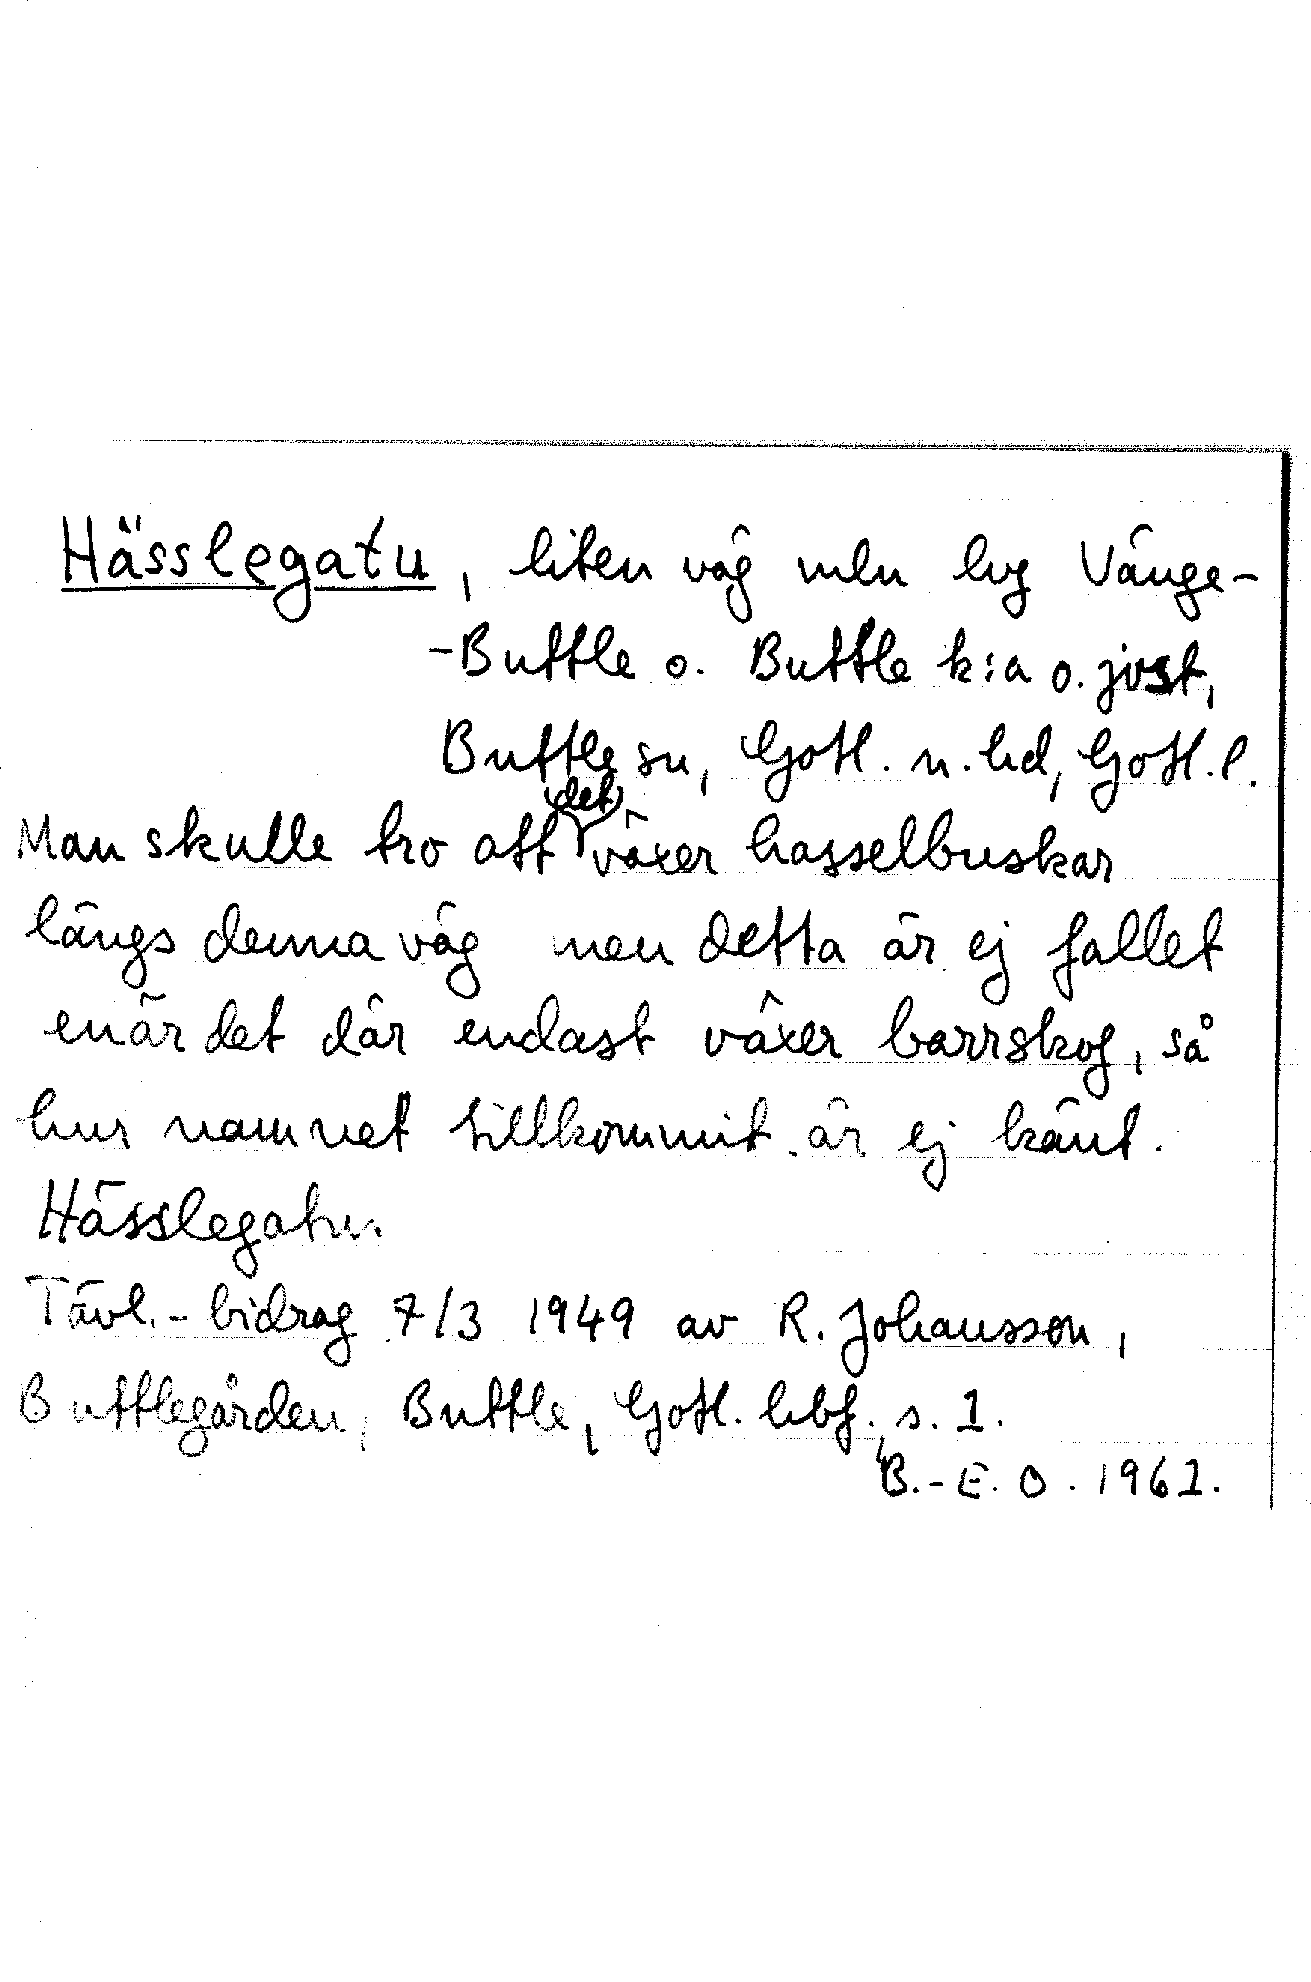 Hässlegatu, liten väg mln lvg Vänge-
-Buttle o. Buttle k:a o. jvst,
Buttle sn, Gotl. n. hd, Gotl. l.
Man skulle tro att (det) växer hasselbuskar
längs denna väg men detta är ej fallet
enär det där endast växer barrskog, så
hur namnet tillkommit är ej känt.
Hässlegatu.
Tävl.-bidrag 7/3 1949 av R. Johansson,
Buttlegården, Buttle, Gotl. hbf. s. 1.
B.-E. O. 1961.